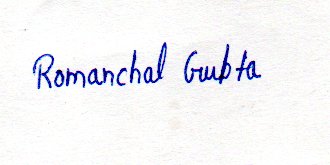 Romanchal Gupta